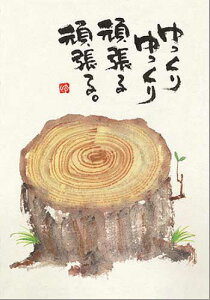 ゆっくり
ゆっくり
頑張る
頑張る。